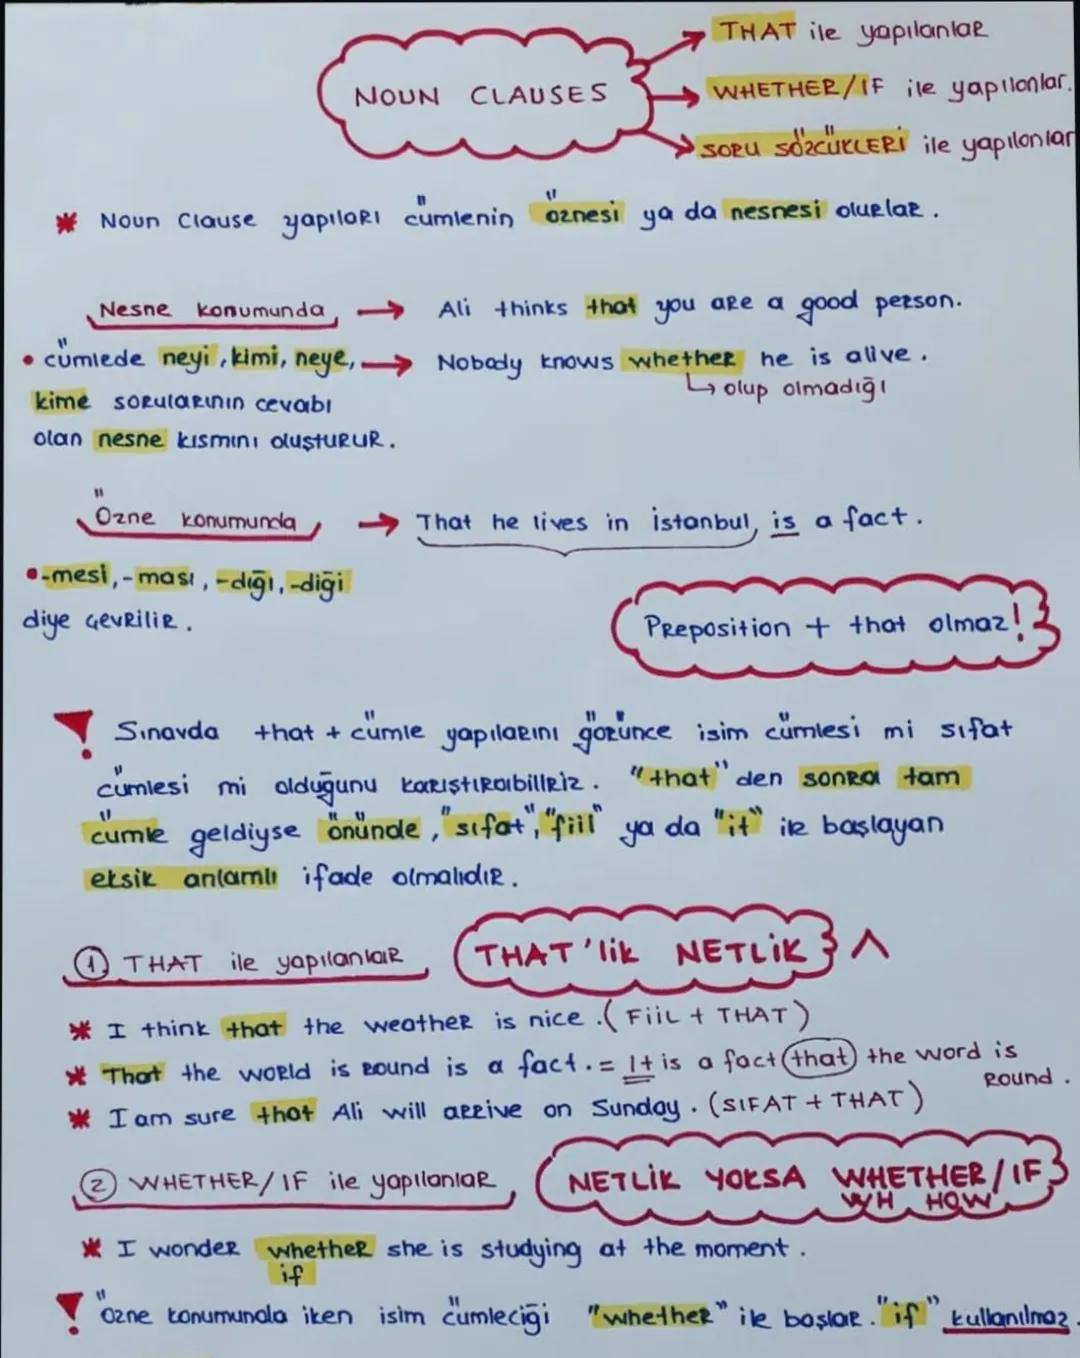 NOUN CLAUSES
THAT ile yapılanlar
WHETHER/IF ile yapılanlar.
SORU SÖZCÜKLERİ ile yapılanlar
* Noun Clause yapıları cümlenin öznesi ya da nesnesi olurlar.
Nesne konumunda → Ali thinks that you are a good person.
• cümlede neyi, kimi, neye, → Nobody knows whether he is alive.
↳ olup olmadığı
kime sorularının cevabı
olan nesne kısmını oluşturur.
Özne konumunda → That he lives in istanbul, is a fact.
•-mesi, -ması, -dığı, -diği
diye çevrilir.
Preposition + that olmaz!
! Sınavda that + cümle yapılarını görünce isim cümlesi mi sıfat
cümlesi mi olduğunu karıştırabiliriz. "that" den sonra tam
cümle geldiyse önünde, "sıfat", "fiil" ya da "it" ile başlayan
eksik anlamlı ifade olmalıdır.
① THAT ile yapılanlar
THAT'lik NETLİK ^
* I think that the weather is nice. (FiiL + THAT)
* That the world is round is a fact. = It is a fact that the word is
round.
* I am sure that Ali will arrive on Sunday. (SIFAT + THAT)
② WHETHER/IF ile yapılanlar
NETLİK YOKSA WHETHER/IF
WH HOW
* I wonder whether she is studying at the moment.
if
! Özne konumunda iken isim cümleciği "whether" ile başlar. "if" kullanılmaz.